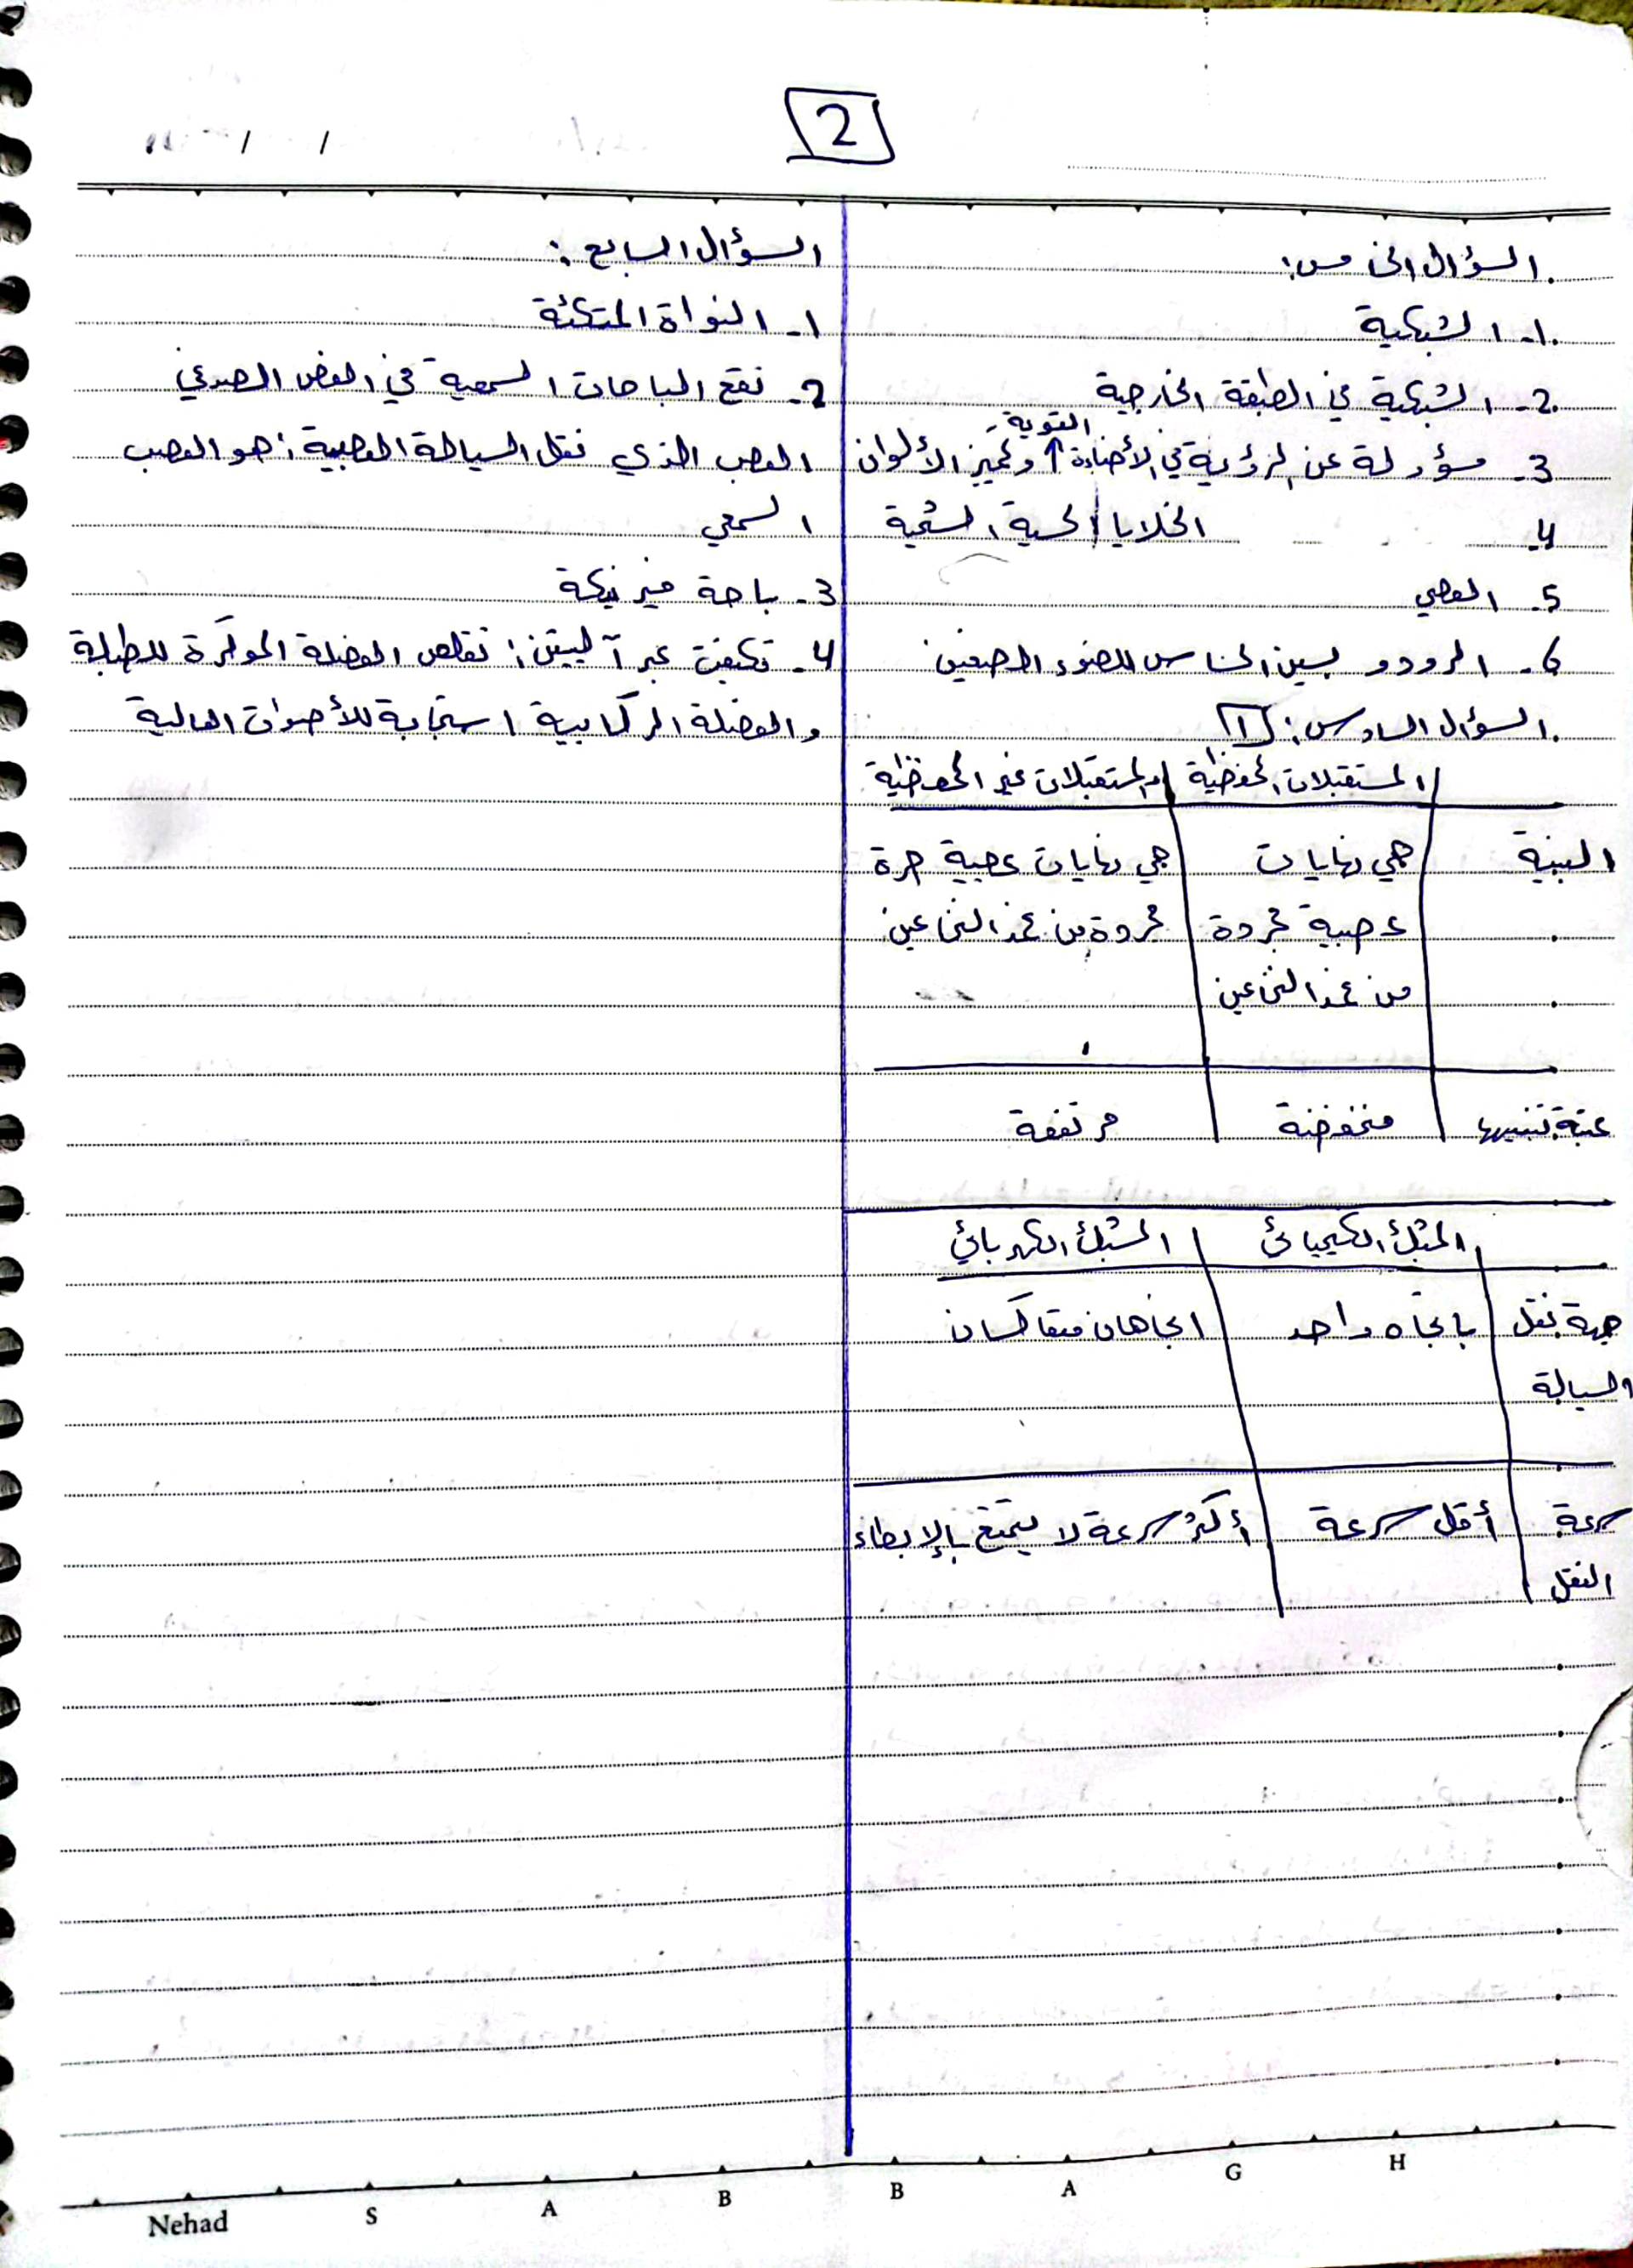 2
/ /
السؤال الخامس:
1- الشبكية
2- الشبكية في الطبقة الخارجية
القوية
3- مسؤولة عن الرؤية في الأضاءة وتمييز الألوان
4- الخلايا الحسية الشمية
5- العصي
6- الرودوبسين الحساس للضوء الضعيف
السؤال السادس: 1
المستقبلات المحفظية | المستقبلات غير المحفظية
البنية | هي نهايات | هي نهايات عصبية حرة
عصبية مجردة | مجردة من غمد النخاعين
من غمد النخاعين
عتبة تنبيهها | منخفضة | مرتفعة
المشبك الكيميائي | المشبك الكهربائي
جهة نقل | باتجاه واحد | اتجاهان متعاكسان
السيالة
سرعة | أقل سرعة | أكثر سرعة لا يتمتع بالإبطاء
النقل
السؤال السابع:
1- النواة المتكئة
2- تقع الباحات السمعية في الفص الصدغي
العصب الذي نقل السيالة العصبية: هو العصب
السمعي
3- باحة فيرنيكة
4- تكيفت عبر آليتين: تقلص العضلة الموترة للطبلة
والعضلة الركابية استجابة للأصوات العالية
Nehad S A B B A G H